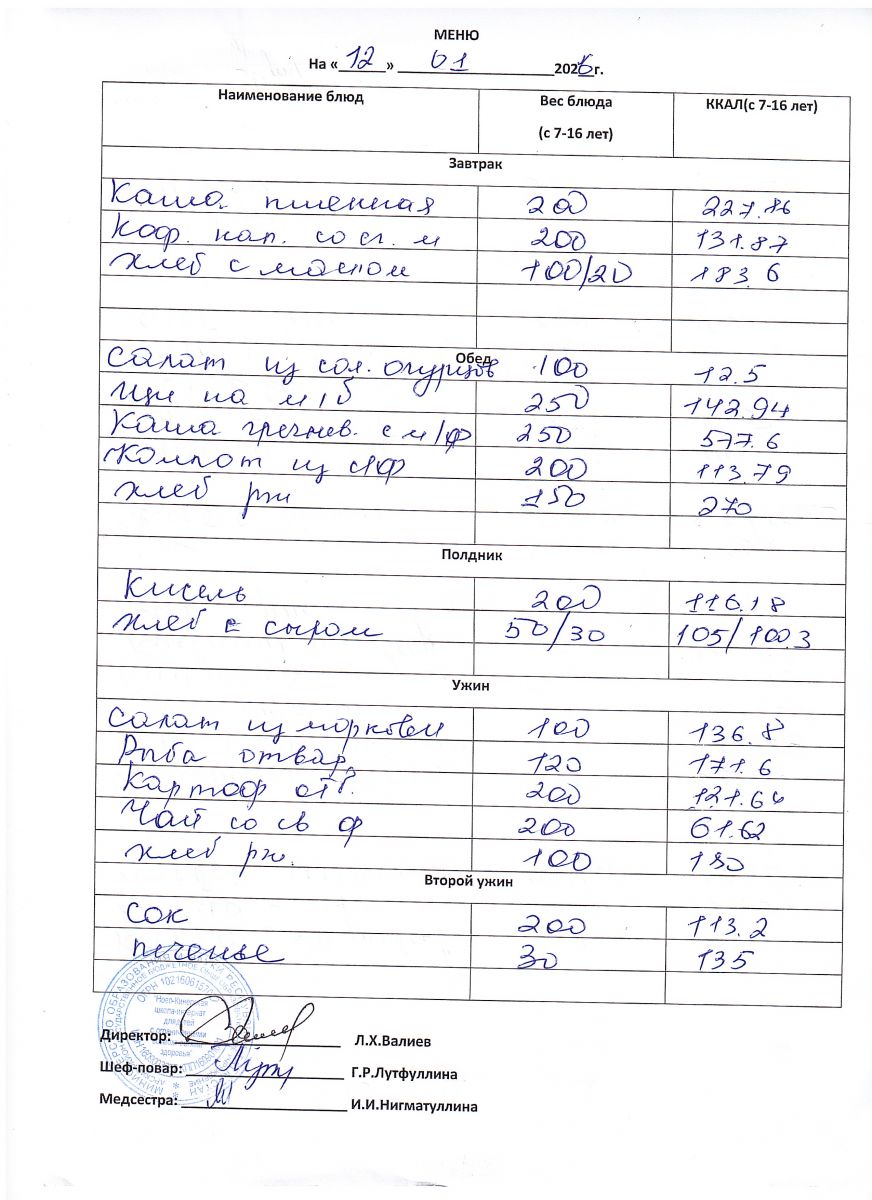 МЕНЮ
На «12» 01 2026г.
Наименование блюд Вес блюда (с 7-16 лет) ККАЛ(с 7-16 лет)
Завтрак
Каша пшенная 200 227.86
Коф. нап. со сг. м 200 131.87
хлеб с маслом 100/20 183.6
Обед
Салат из сол. огурцов 100 12.5
Щи на м/б 250 142.94
Каша гречнев. с м/ф 250 577.6
Компот из с/ф 200 113.79
хлеб рж 150 270
Полдник
Кисель 200 116.18
хлеб с сыром 50/30 105/100.3
Ужин
Салат из моркови 100 136.8
Рыба отвар. 120 171.6
Картоф отв. 200 121.64
Чай со св ф 200 61.62
хлеб рж. 100 180
Второй ужин
Сок 200 113.2
печенье 30 135
Директор: Л.Х.Валиев
Шеф-повар: Г.Р.Лутфуллина
Медсестра: И.И.Нигматуллина